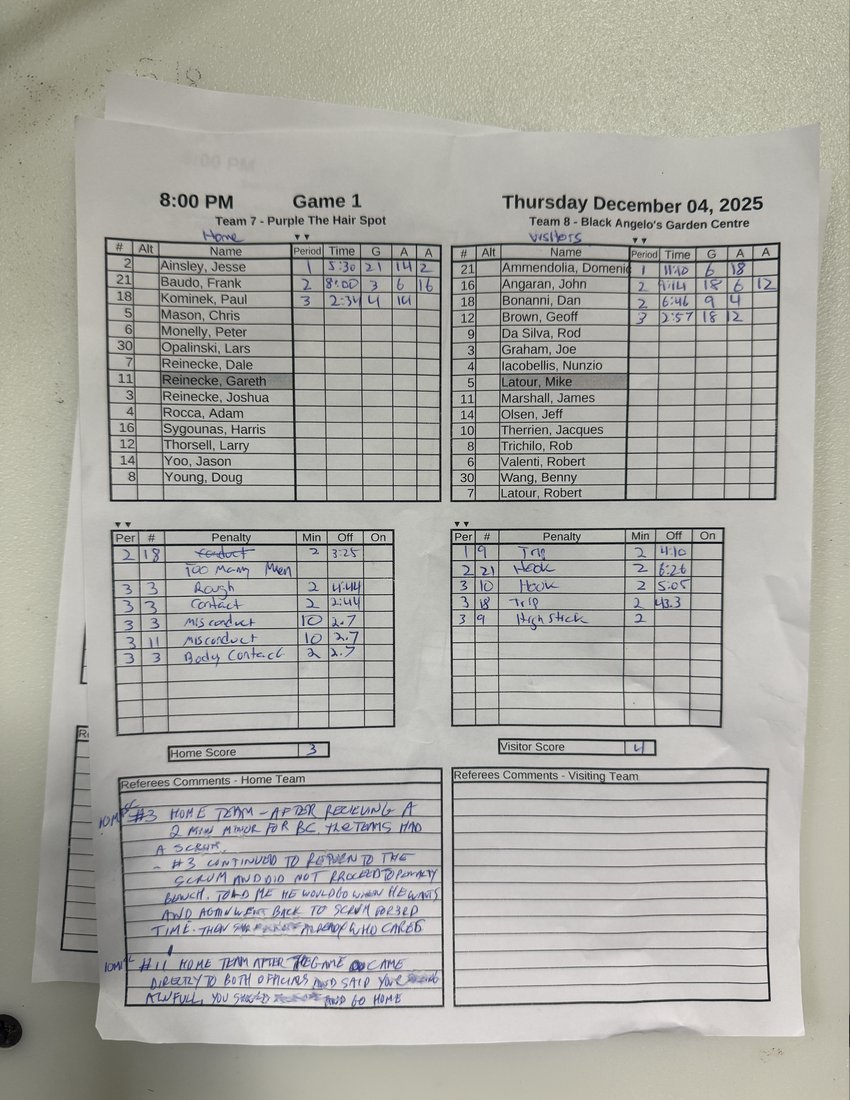 8:00 PM Game 1 Thursday December 04, 2025
Team 7 - Purple The Hair Spot
Home
# Alt Name Period Time G A A
2 Ainsley, Jesse 1 5:30 21 14 2
21 Baudo, Frank 2 8:00 3 6 16
18 Kominek, Paul 3 2:34 4 14
5 Mason, Chris
6 Monelly, Peter
30 Opalinski, Lars
7 Reinecke, Dale
11 Reinecke, Gareth
3 Reinecke, Joshua
4 Rocca, Adam
16 Sygounas, Harris
12 Thorsell, Larry
14 Yoo, Jason
8 Young, Doug
Team 8 - Black Angelo's Garden Centre
Visitors
# Alt Name Period Time G A A
21 Ammendolia, Domenic 1 11:10 6 18
16 Angaran, John 2 9:14 18 6 12
18 Bonanni, Dan 2 6:46 9 4
12 Brown, Geoff 3 2:57 18 12
9 Da Silva, Rod
3 Graham, Joe
4 Iacobellis, Nunzio
5 Latour, Mike
11 Marshall, James
14 Olsen, Jeff
10 Therrien, Jacques
8 Trichilo, Rob
6 Valenti, Robert
30 Wang, Benny
7 Latour, Robert
Per # Penalty Min Off On
2 18 Conduct 2 3:25
Too Many Men
3 3 Rough 2 4:44
3 3 Contact 2 2:44
3 3 Misconduct 10 2.7
3 11 Misconduct 10 2.7
3 3 Body Contact 2 2.7
Per # Penalty Min Off On
1 9 Trip 2 4:10
2 21 Hook 2 6:26
3 10 Hook 2 5:05
3 18 Trip 2 43.3
3 9 High Stick 2
Home Score 3
Visitor Score 4
Referees Comments - Home Team
#3 HOME TEAM - AFTER RECIEVING A
2 MIN MINOR FOR BC, the TEAMS HAD
A SCRUM.
- #3 CONTINUED TO RETURN TO THE
SCRUM AND DID NOT PROCEED TO PENALTY
BENCH. TOLD ME HE WOULD GO WHEN HE WANTS
AND AGAIN WENT BACK TO SCRUM FOR 3RD
TIME. THEN ALREADY WHO CARES
#11 HOME TEAM AFTER THE GAME CAME
DIRECTLY TO BOTH OFFICIALS AND SAID YOUR
AWFULL, YOU SHOULD AND GO HOME
Referees Comments - Visiting Team